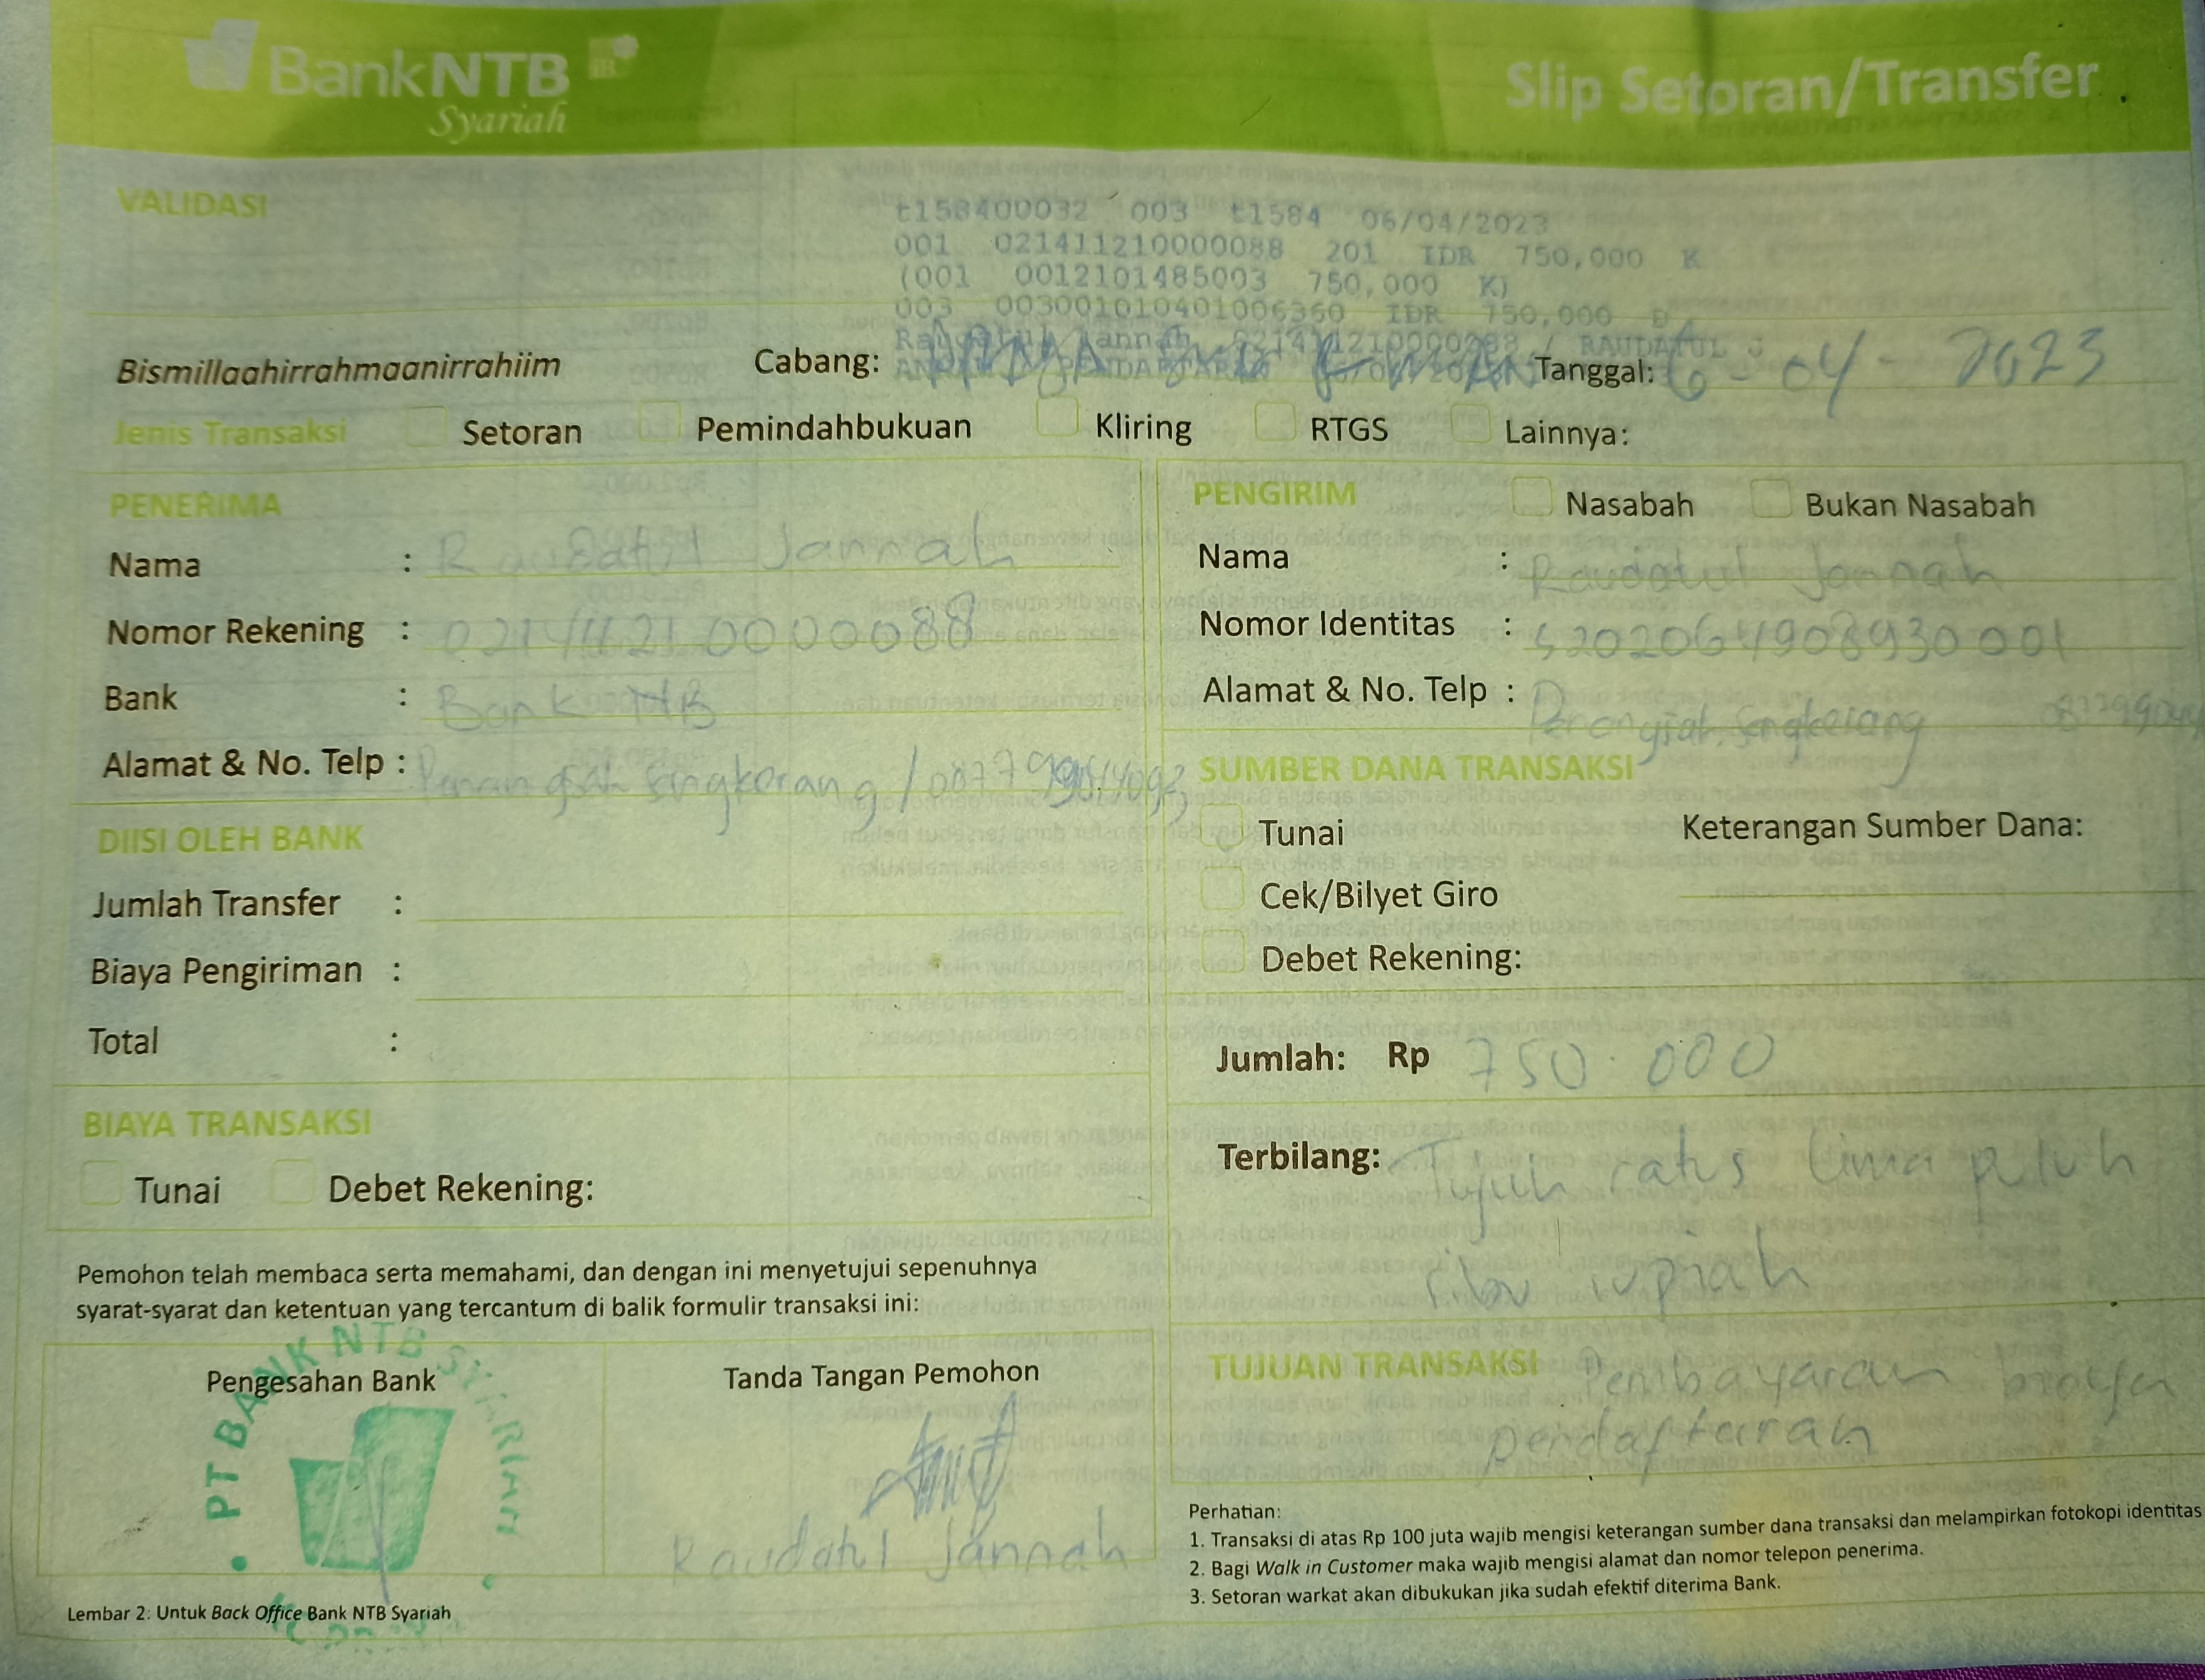 BankNTB
Syariah
Slip Setoran/Transfer
VALIDASI
t158400032 003 t1584 06/04/2023
001 021411210000088 201 IDR 750,000 K
(001 0012101485003 750,000 K)
003 003001010401006360 IDR 750,000 D
Raudatul Jannah 021411210000088 / RAUDATUL J
Bismillaahirrahmaanirrahiim
Cabang:
Tanggal: 6 - 04 - 2023
Jenis Transaksi Setoran Pemindahbukuan Kliring RTGS Lainnya:
PENERIMA
Nama : Raudatul Jannah
Nomor Rekening : 021411210000088
Bank : Bank NTB
Alamat & No. Telp :
DIISI OLEH BANK
Jumlah Transfer :
Biaya Pengiriman :
Total :
BIAYA TRANSAKSI
Tunai Debet Rekening:
PENGIRIM Nasabah Bukan Nasabah
Nama : Raudatul Jannah
Nomor Identitas : 5202064908930001
Alamat & No. Telp :
SUMBER DANA TRANSAKSI
Tunai Keterangan Sumber Dana:
Cek/Bilyet Giro
Debet Rekening:
Jumlah: Rp 750.000
Terbilang: Tujuh ratus lima puluh
ribu rupiah
TUJUAN TRANSAKSI Pembayaran biaya
pendaftaran
Pemohon telah membaca serta memahami, dan dengan ini menyetujui sepenuhnya
syarat-syarat dan ketentuan yang tercantum di balik formulir transaksi ini:
Pengesahan Bank
PT BANK NTB SYARIAH
Tanda Tangan Pemohon
Raudatul Jannah
Perhatian:
1. Transaksi di atas Rp 100 juta wajib mengisi keterangan sumber dana transaksi dan melampirkan fotokopi identitas
2. Bagi Walk in Customer maka wajib mengisi alamat dan nomor telepon penerima.
3. Setoran warkat akan dibukukan jika sudah efektif diterima Bank.
Lembar 2: Untuk Back Office Bank NTB Syariah